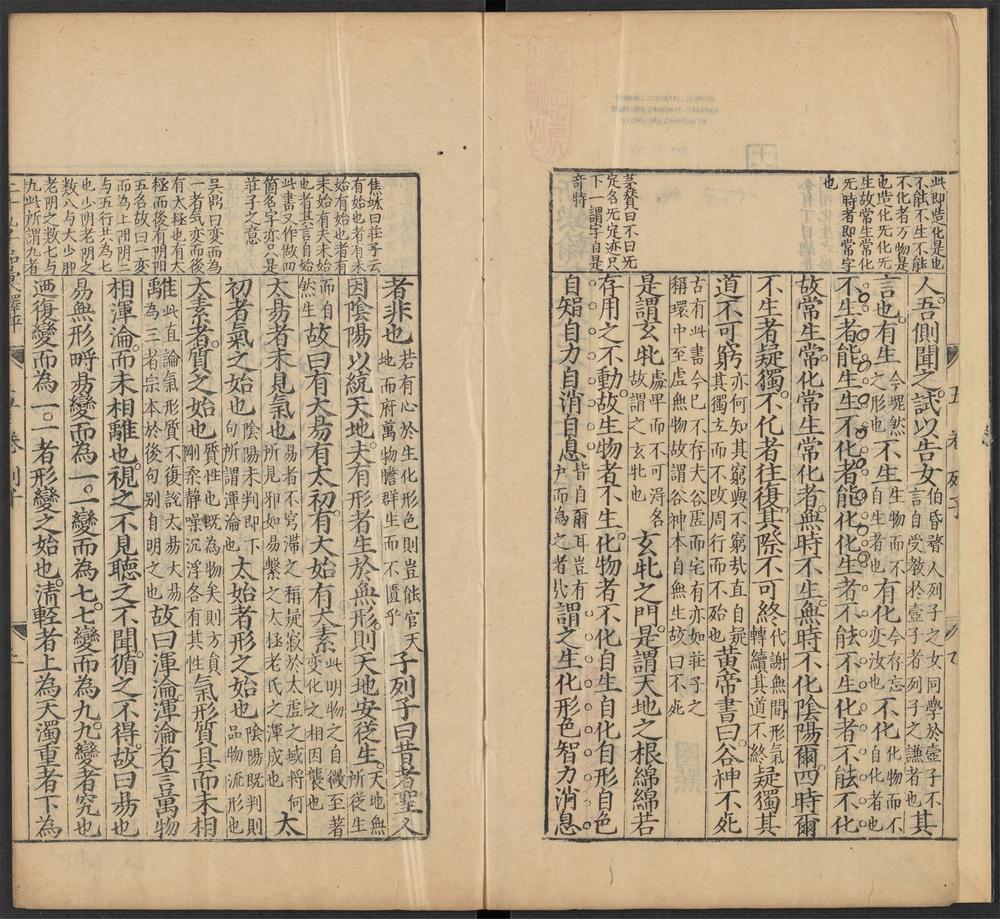 此即造化是也
不能不生不能
不化者万物是
也造化无化无
生故常生常化
无時者即常字
也
定名无定亦只
下一謂字自是
奇特
人吾側聞之試以告女伯昏瞀人列子之女同學於壺子不言自受敎於壺子者列子之謙者也其
言也有生今塊然之形也不生生物而不自生者也有化今存忘变汝也不化化物而不自化者也
不生者能生生不化者能化化生者不能不生化者不能不化
故常生常化常生常化者無時不生無時不化陰陽爾四時爾
不生者疑獨不化者往復其際不可終代謝無間形氣轉續其道不終疑獨其
道不可窮亦何知其窮與不窮哉直自疑其獨立而不改周行而不殆也黄帝書曰谷神不死
古有此書今已不存夫谷虛而宅有亦如莊子之稱環中至虛無物故謂谷神本自無生故曰不死
是謂玄牝處卑而不可淂名故謂之玄牝也玄牝之門是謂天地之根綿綿若
存用之不動故生物者不生化物者不化自生自化自形自色
自智自力自消自息皆自爾耳豈有尸而為之者㢤謂之生化形色智力消息
焦竑曰莊子云
有始也者有未
始有始也者有
未始有夫未始
也者其言自始
此書又作做而
箇名字亦只是
莊子之意
一者氣变而後
有太極也有太
極而後有阴阳
五名故曰一変
与五行共為七
也少阴老阴之
九此所謂九者
者非也若有心於生化形色則豈能官天地而府萬物瞻群生而不匱乎子列子曰昔者聖人
因陰陽以統天地夫有形者生於無形則天地安從生天地無所從生
而自然生故曰有太昜有太初有太始有太素此明物之自微至著變化之相因襲也
太昜者未見氣也昜者不窮滯之稱疑寂於太虛之域將何所見卽如昜繫之太極老氏之渾成也太
初者氣之始也陰陽未判卽下句所謂渾淪也太始者形之始也陰陽旣判則品物流形也
太素者質之始也質性也旣為物矣則方員剛柔靜噪沉浮各有其性氣形質具而未相
離此直論氣形質不復說太昜太昜為三者宗本於後句别自明之也故曰渾淪渾淪者言萬物
相渾淪而未相離也視之不見聽之不聞循之不得故曰昜也
昜無形㽟昜變而為一一變而為七七變而為九九變者究也
迺復變而為一一者形變之始也清輕者上為天濁重者下為